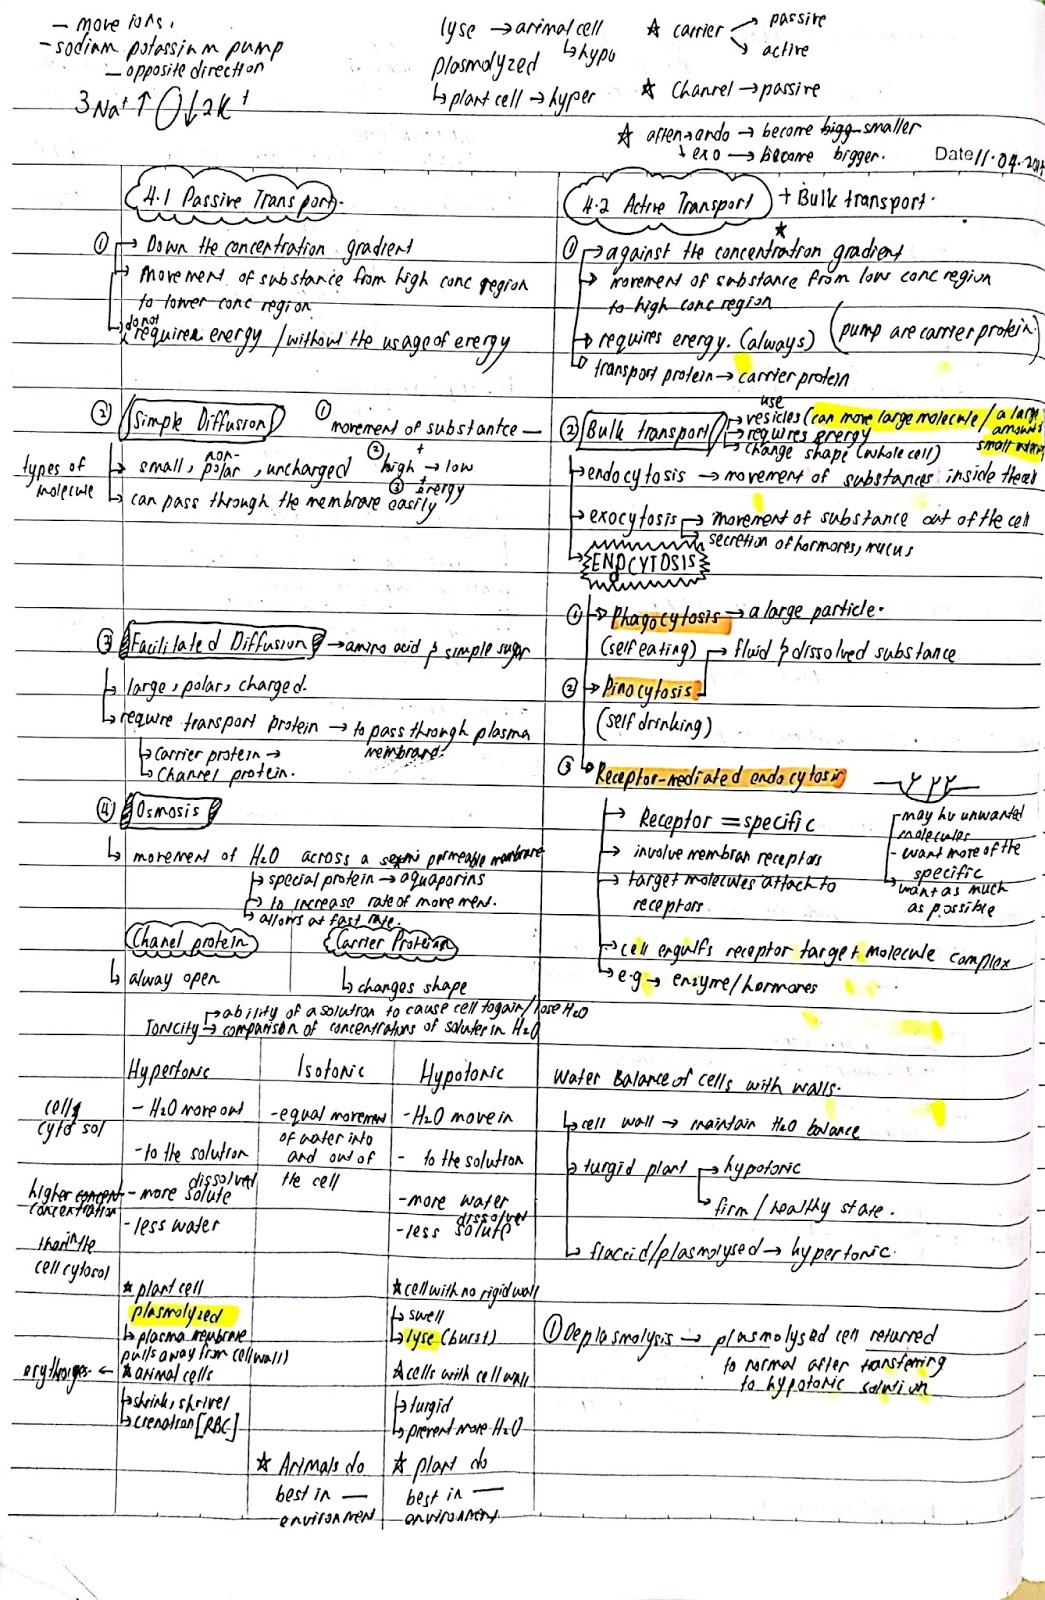 - move ions.
- sodium potassium pump
- opposite direction
3Na+ ↑ ↓ 2K+
lyse → animal cell
↳ hypo
plasmolyzed
↳ plant cell → hyper
☆ carrier → passive
→ active
☆ Channel → passive
☆ often → endo → become bigg smaller
↳ exo → become bigger.
Date 11.04.
4.1 Passive Transport.
① → Down the concentration gradient
→ movement of substance from high conc region
to lower conc region.
do not
→ requires energy / without the usage of energy
② Simple Diffusion
① movement of substantce —
② high → low
+
③ energy
types of
molecule
→ small, non-polar, uncharged
→ can pass through the membrane easily
③ Facilitated Diffusion → amino acid & simple sugar
→ large, polar, charged.
→ require transport protein → to pass through plasma
membrane.
↳ carrier protein →
↳ channel protein.
④ Osmosis
↳ movement of H2O across a semi permeable membrane
↳ special protein → aquaporins
↳ to increase rate of movement.
↳ allows at fast rate.
Chanel protein
↳ alway open
Carrier Protein
↳ changes shape
Tonicity → ability of a solution to cause cell to gain/lose H2O
→ comparison of concentrations of solutes in H2O
Hypertonic
Isotonic
Hypotonic
cell
cytosol
- H2O move out
- to the solution
higher concent
concentration
than in the
cell cytosol
- more dissolved solute
- less water
- equal movement
of water into
and out of
the cell
- H2O move in
- to the solution
- more water
- less dissolved solute
☆ plant cell
plasmolyzed
↳ plasma membrane
pulls away from cell wall)
← ☆ animal cells
↳ shrink, shrivel
↳ crenation [RBC]
☆ cell with no rigid wall
↳ swell
↳ lyse (burst)
☆ cells with cell wall
↳ turgid
↳ prevent more H2O
☆ Animals do
best in —
environment
☆ plant do
best in —
environment
4.2 Active Transport + Bulk transport.
☆
① → against the concentration gradient
→ movement of substance from low conc region
to high conc region
→ requires energy. (always)
(pump are carrier protein)
→ transport protein → carrier protein
② Bulk transport
use
→ vesicles (can move large molecule / a large
amount
small
→ requires energy
→ change shape (whole cell)
→ endocytosis → movement of substances inside the cell
→ exocytosis → movement of substance out of the cell
↳ secretion of hormones, mucus
→ ENDCYTOSIS
① → Phagocytosis → a large particle.
(self eating)
→ fluid & dissolved substance
② → Pinocytosis
(self drinking)
③ Receptor-mediated endocytosis
→ Receptor = specific
→ involve membran receptors
→ target molecules attach to
receptors.
→ cell engulfs receptor target molecule complex
→ e.g → enzyme/hormones
- may hv unwanted
molecules
- want more of the
specific
→ want as much
as possible
Water Balance of cells with walls.
→ cell wall → maintain H2O balance
→ turgid plant → hypotonic
↳ firm / healthy state.
→ flaccid/plasmolysed → hypertonic.
① Deplasmolysis → plasmolysed cell returned
to normal after transfering
to hypotonic solution